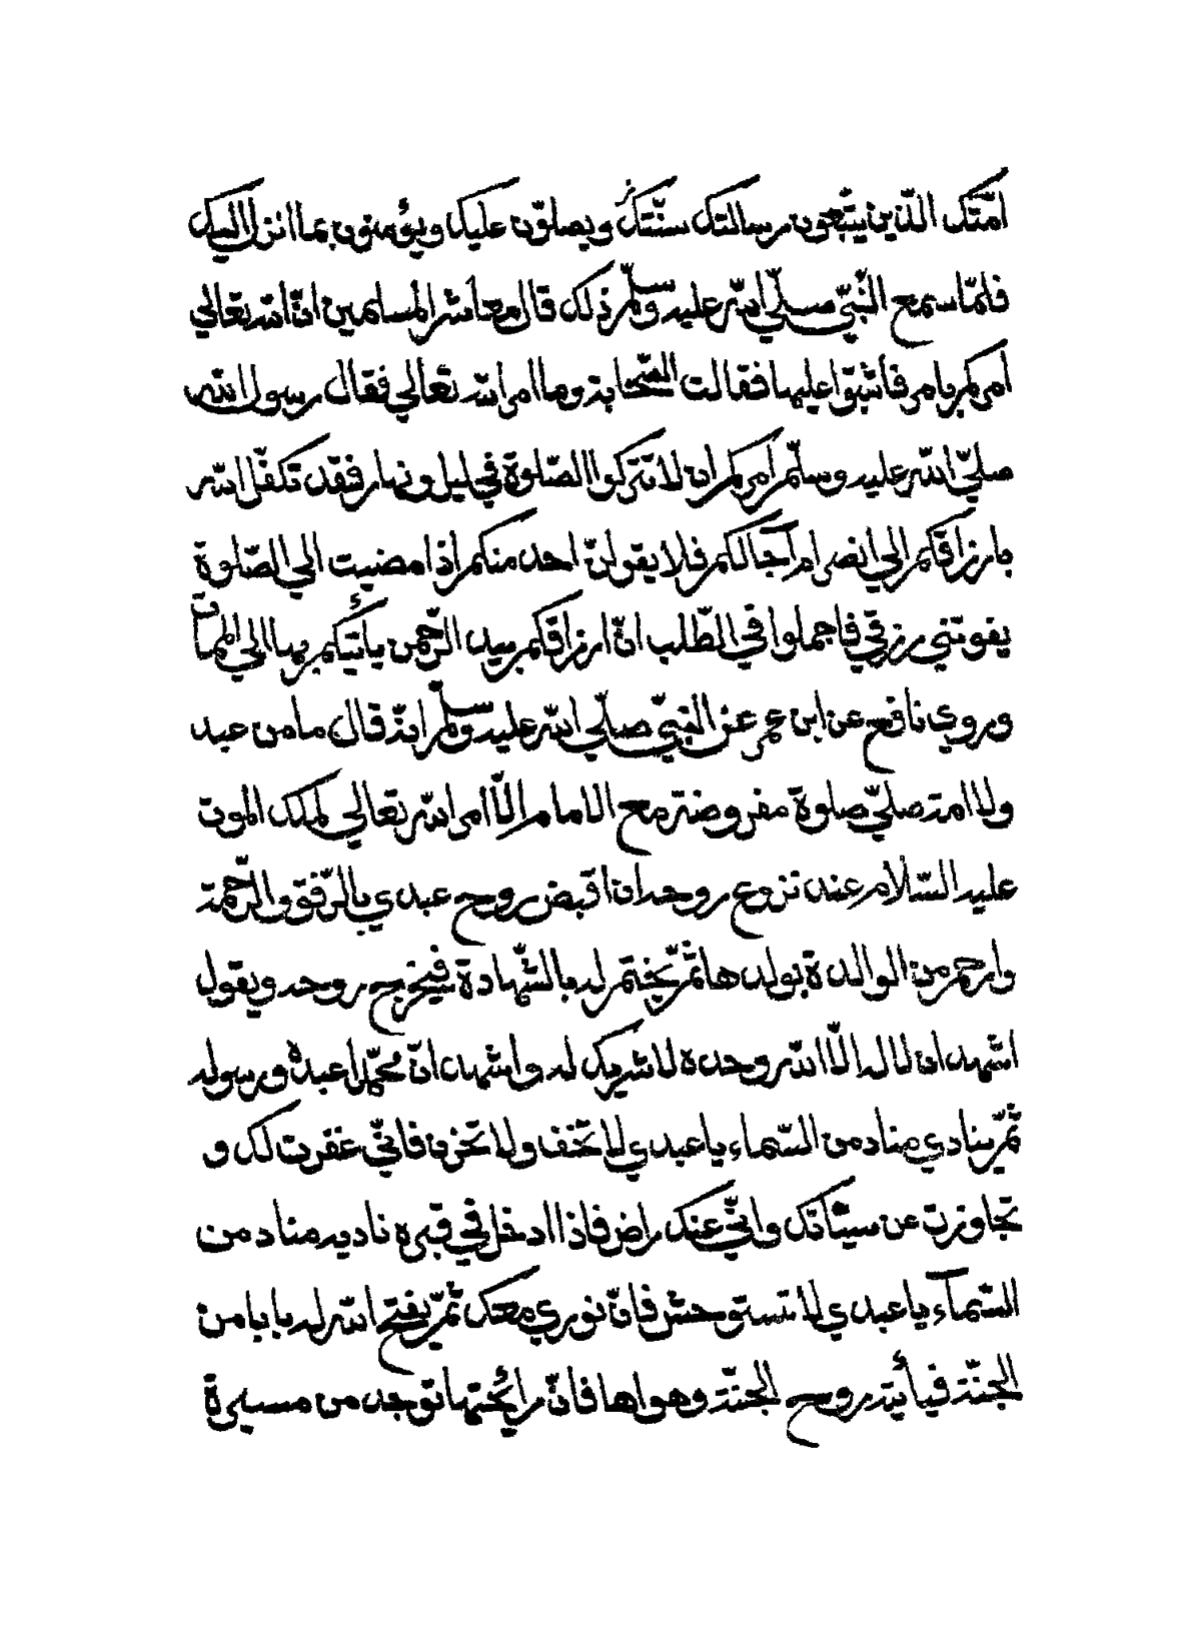 امّتك الّذين يتّبعون رسالتك سنّتك ويصلّون عليك ويؤمنون بما انزل اليك
فلمّا سمع النّبيّ صلّي الله عليه وسلّم ذلك قال معاشر المسلمين انّ الله تعالي
امركم بامر فأثبتوا عليها فقالت الصّحابة وما امر الله تعالي فقال رسول الله
صلّي الله عليه وسلّم امركم ان لا تتركوا الصّلوة في ليل ونهار فقد تكفّل الله
بارزاقكم الي انصرام آجالكم فلا يقولنّ احد منكم اذا مضيت الي الصّلوة
يفوتني رزقي فاجملوا في الطّلب انّ ارزاقكم بيد الرّحمن يأتيكم بها الي الممات
وروي نافع عن ابن عمر عن النّبيّ صلّي الله عليه وسلّم انّه قال ما من عبد
ولا امة صلّي صلوة مفروضة مع الامام الّا امر الله تعالي لملك الموت
عليه السّلام عند نزوع روحه ان اقبض روح عبدي بالرّفق والرّحمة
وارحم من الوالدة بولدها ثمّ يختم له بالشّهادة فيخرج روحه ويقول
اشهد ان لا اله الّا الله وحده لا شريك له واشهد انّ محمّدا عبده ورسوله
ثمّ ينادي مناد من السّماء يا عبدي لا تخف ولا تحزن فانّي غفرت لك و
تجاوزت عن سيئاتك وانّي عنك راض فاذا ادخل في قبره ناديه مناد من
السّمآء يا عبدي لا تستوحش فانّ نوري معك ثمّ يفتح الله له بابا من
الجنّة فيأتيه روح الجنّة وهواها فانّ رائحتها توجد من مسيرة